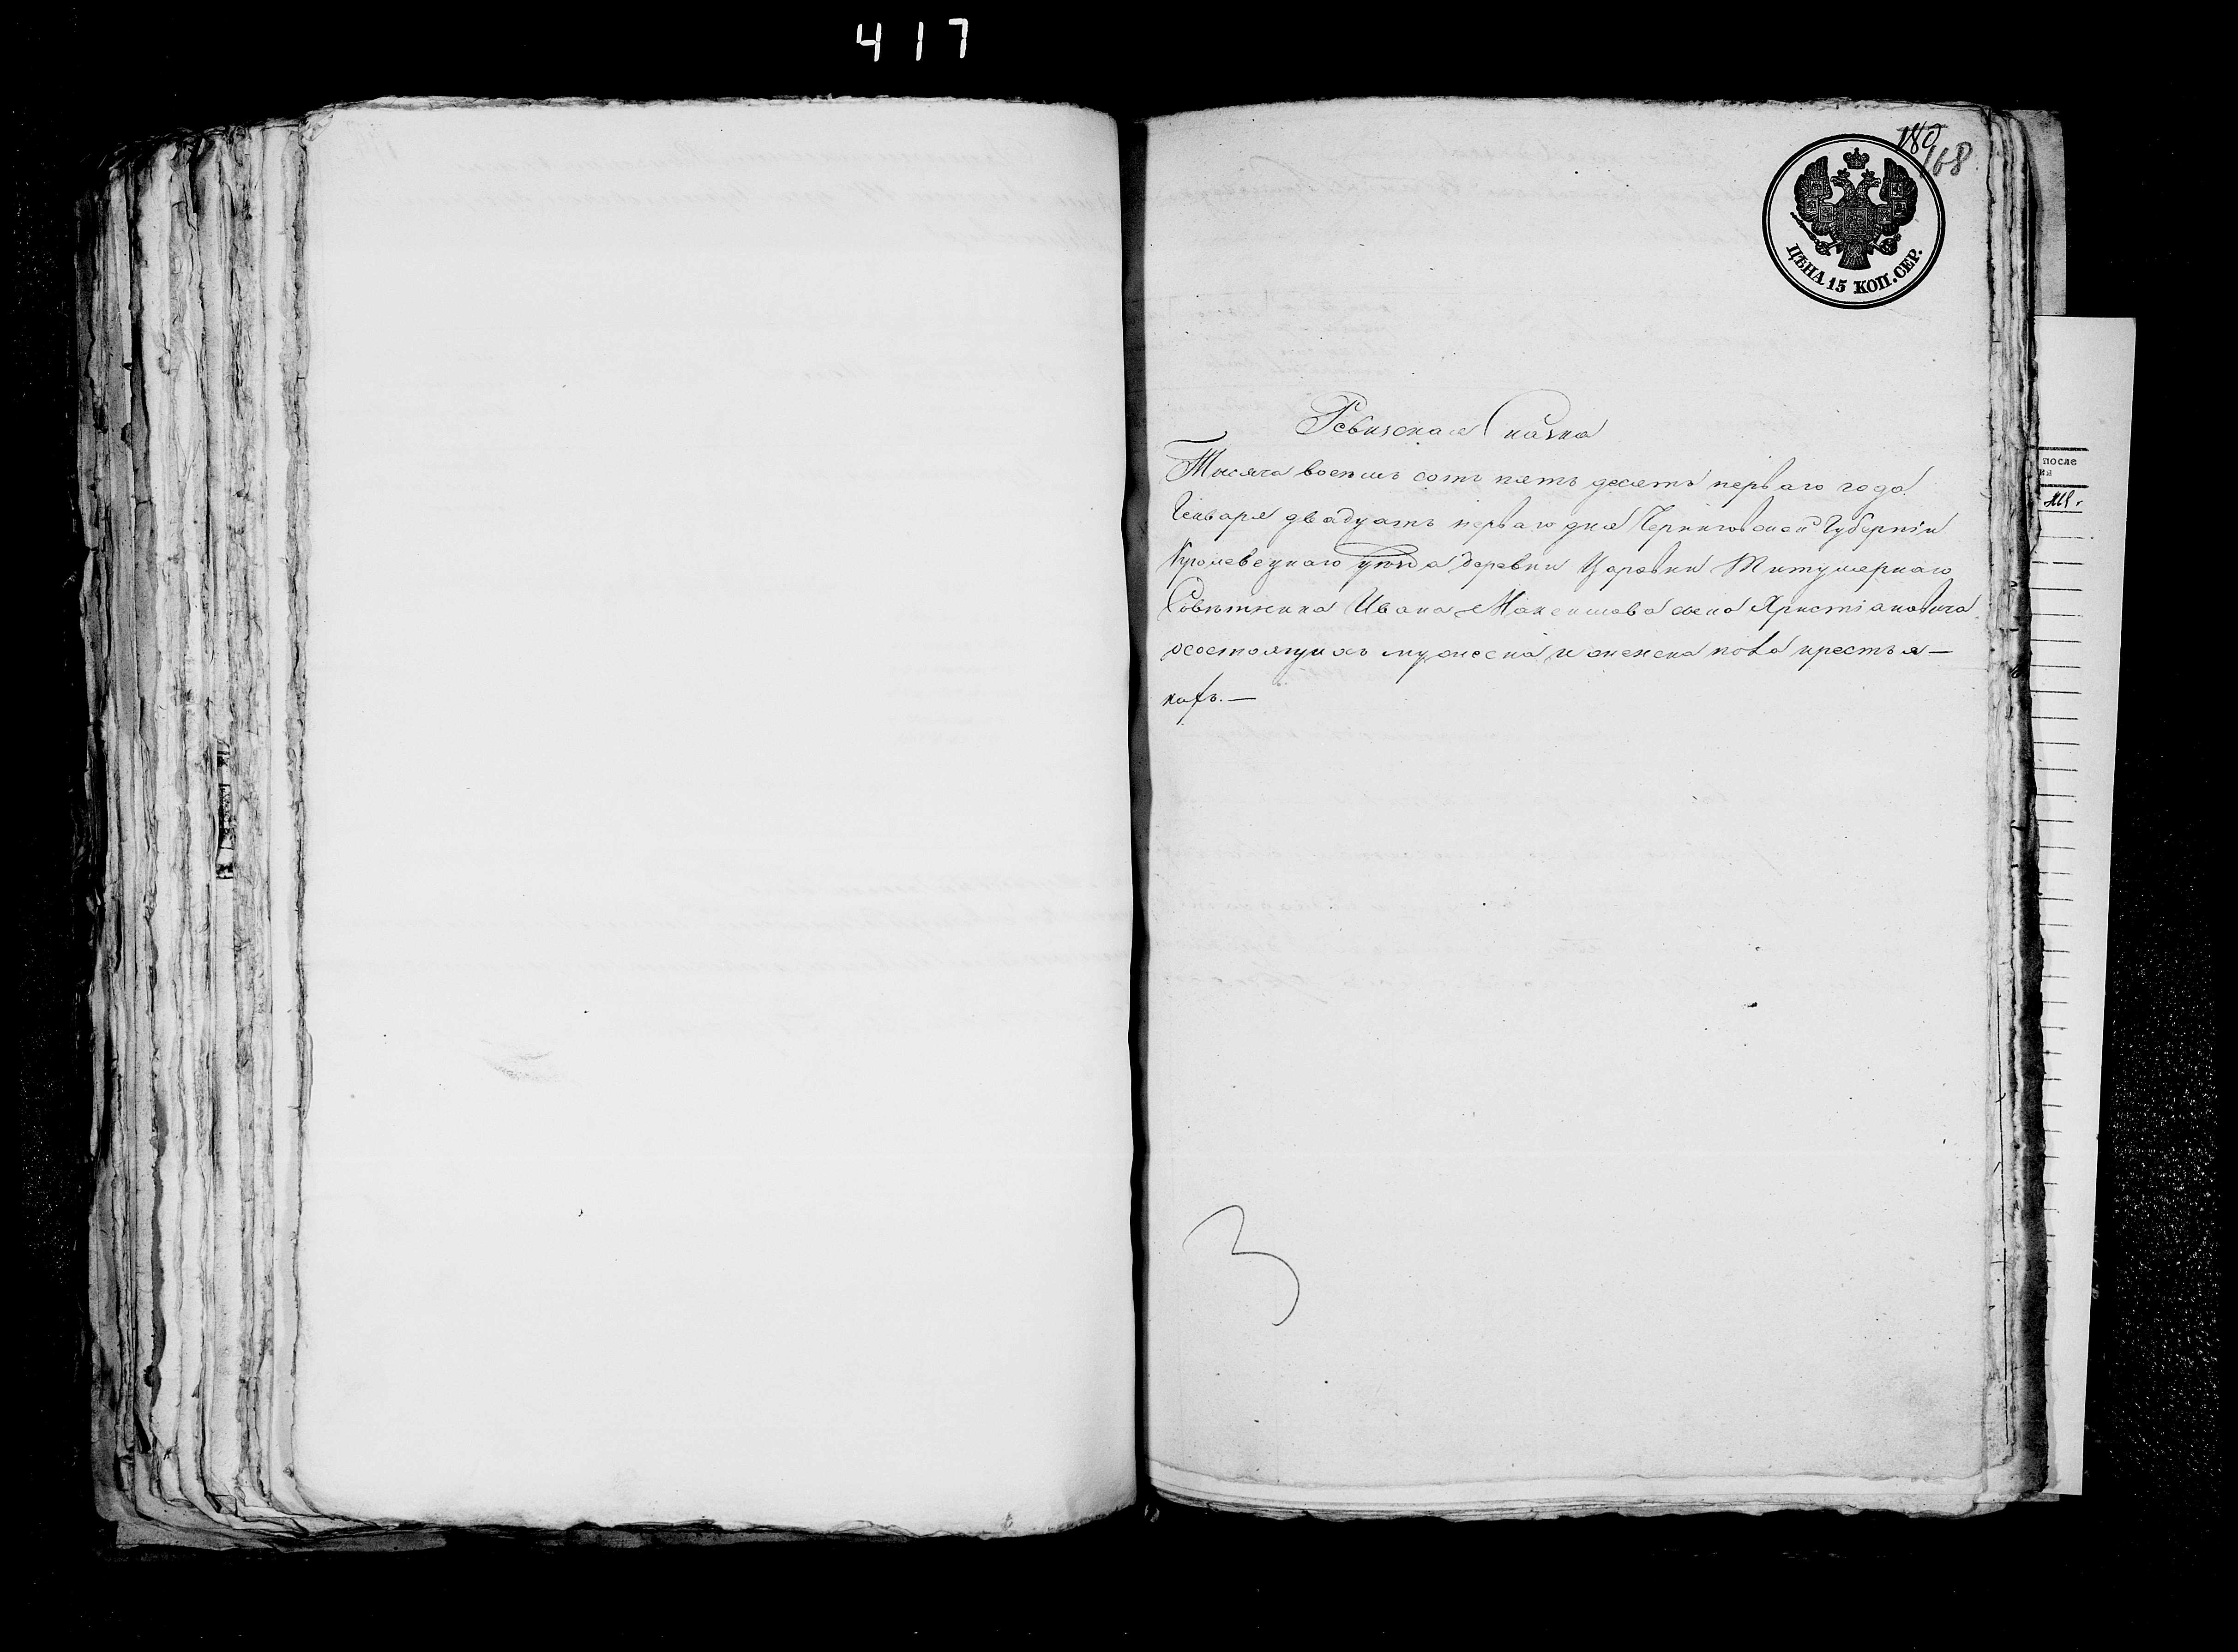 417
180
168
ЦѢНА 15 КОП. СЕР.
после
Ревизская Сказка
Тысяча восемь сотъ пять десятъ перваго года
Генваря двадцать перваго дня Черниговской Губерніи
Кролевецкаго уѣзда деревни Царовки Титулярнаго
Совѣтника Ивана Максимова сына Христіановича
о состоящихъ мужеска и женска пола крестья—
нахъ.—